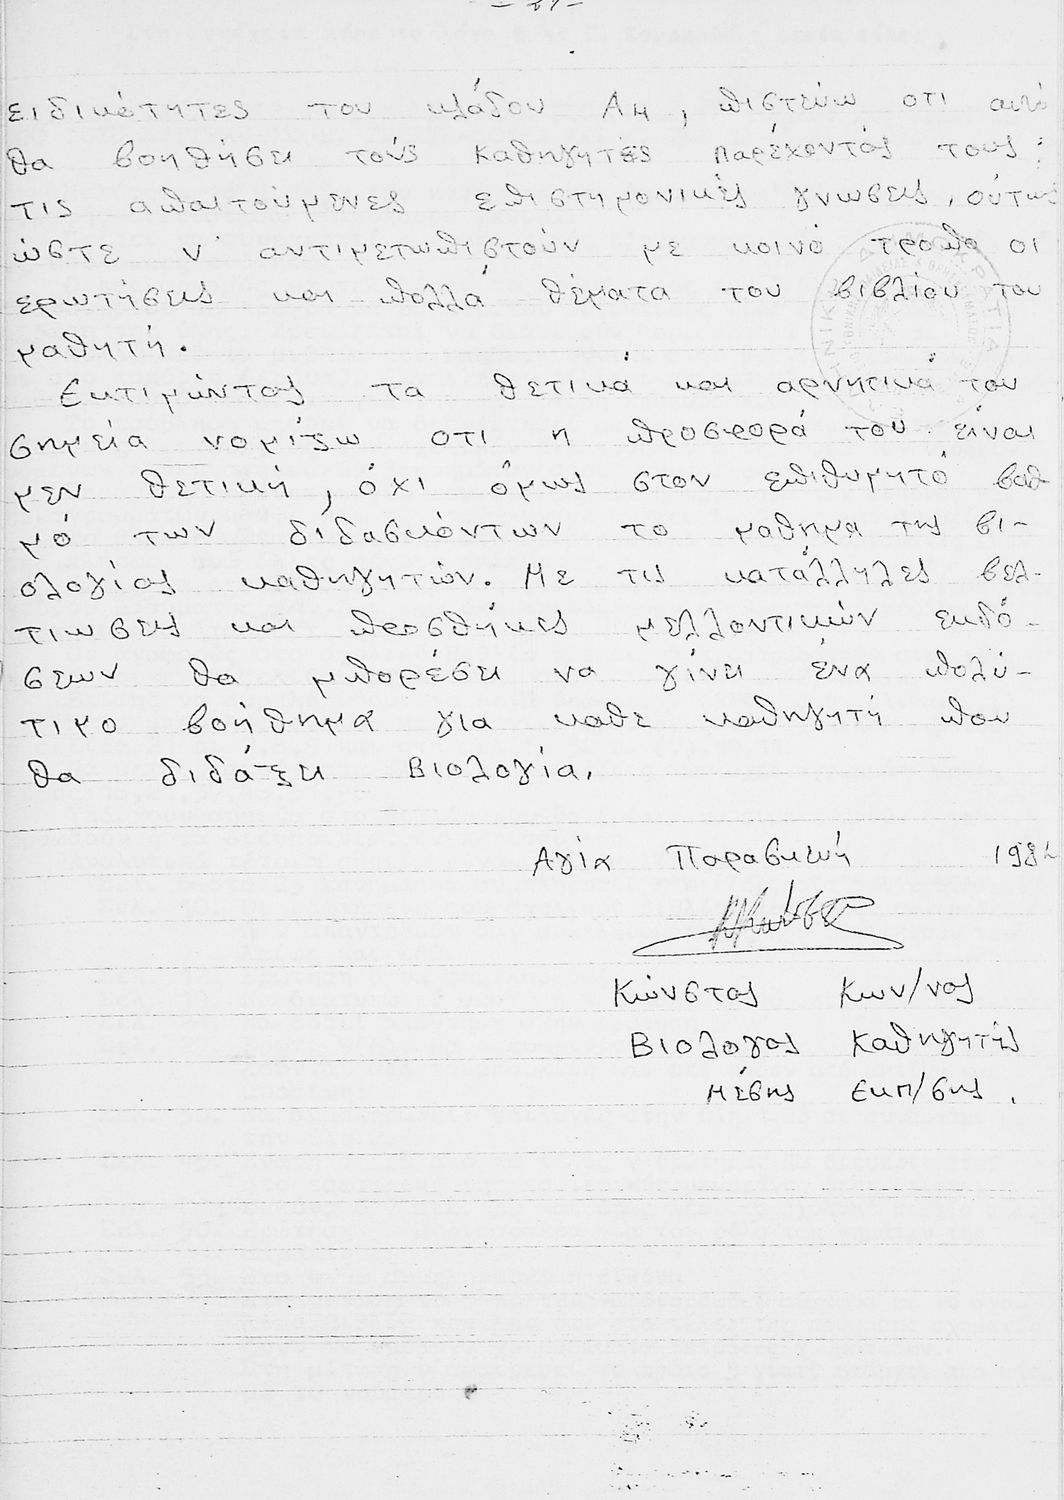 ειδικότητες του κλάδου Α4, πιστεύω οτι αυτό
θα βοηθήσει τούς καθηγητές παρέχοντάς τους
τις απαιτούμενες επιστημονικές γνωσεις, ούτως
ώστε ν' αντιμετωπιστούν με κοινό τροπο οι
ερωτήσεις και πολλά θέματα του βιβλίου του
μαθητή.
Εκτιμώντας τα θετικά και αρνητικά του
σημεία νομίζω οτι η προσφορά του είναι
μεν θετική, όχι όμως στον επιθυμητό βαθ
μό των διδασκόντων το μαθημα της βι-
ολογίας καθηγητών. Με τις κατάλληλες βελ-
τιωσεις και προσθήκες μελλοντικών εκδό-
σεων θα μπορέσει να γίνει ένα πολύ-
τιμο βοήθημα για καθε καθηγητή που
θα διδάξει Βιολογία.
Αγία Παρασκευή 198
Κώνστας Κων/νος
Βιολογος Καθηγητής
Μέσης Εκπ/σης.